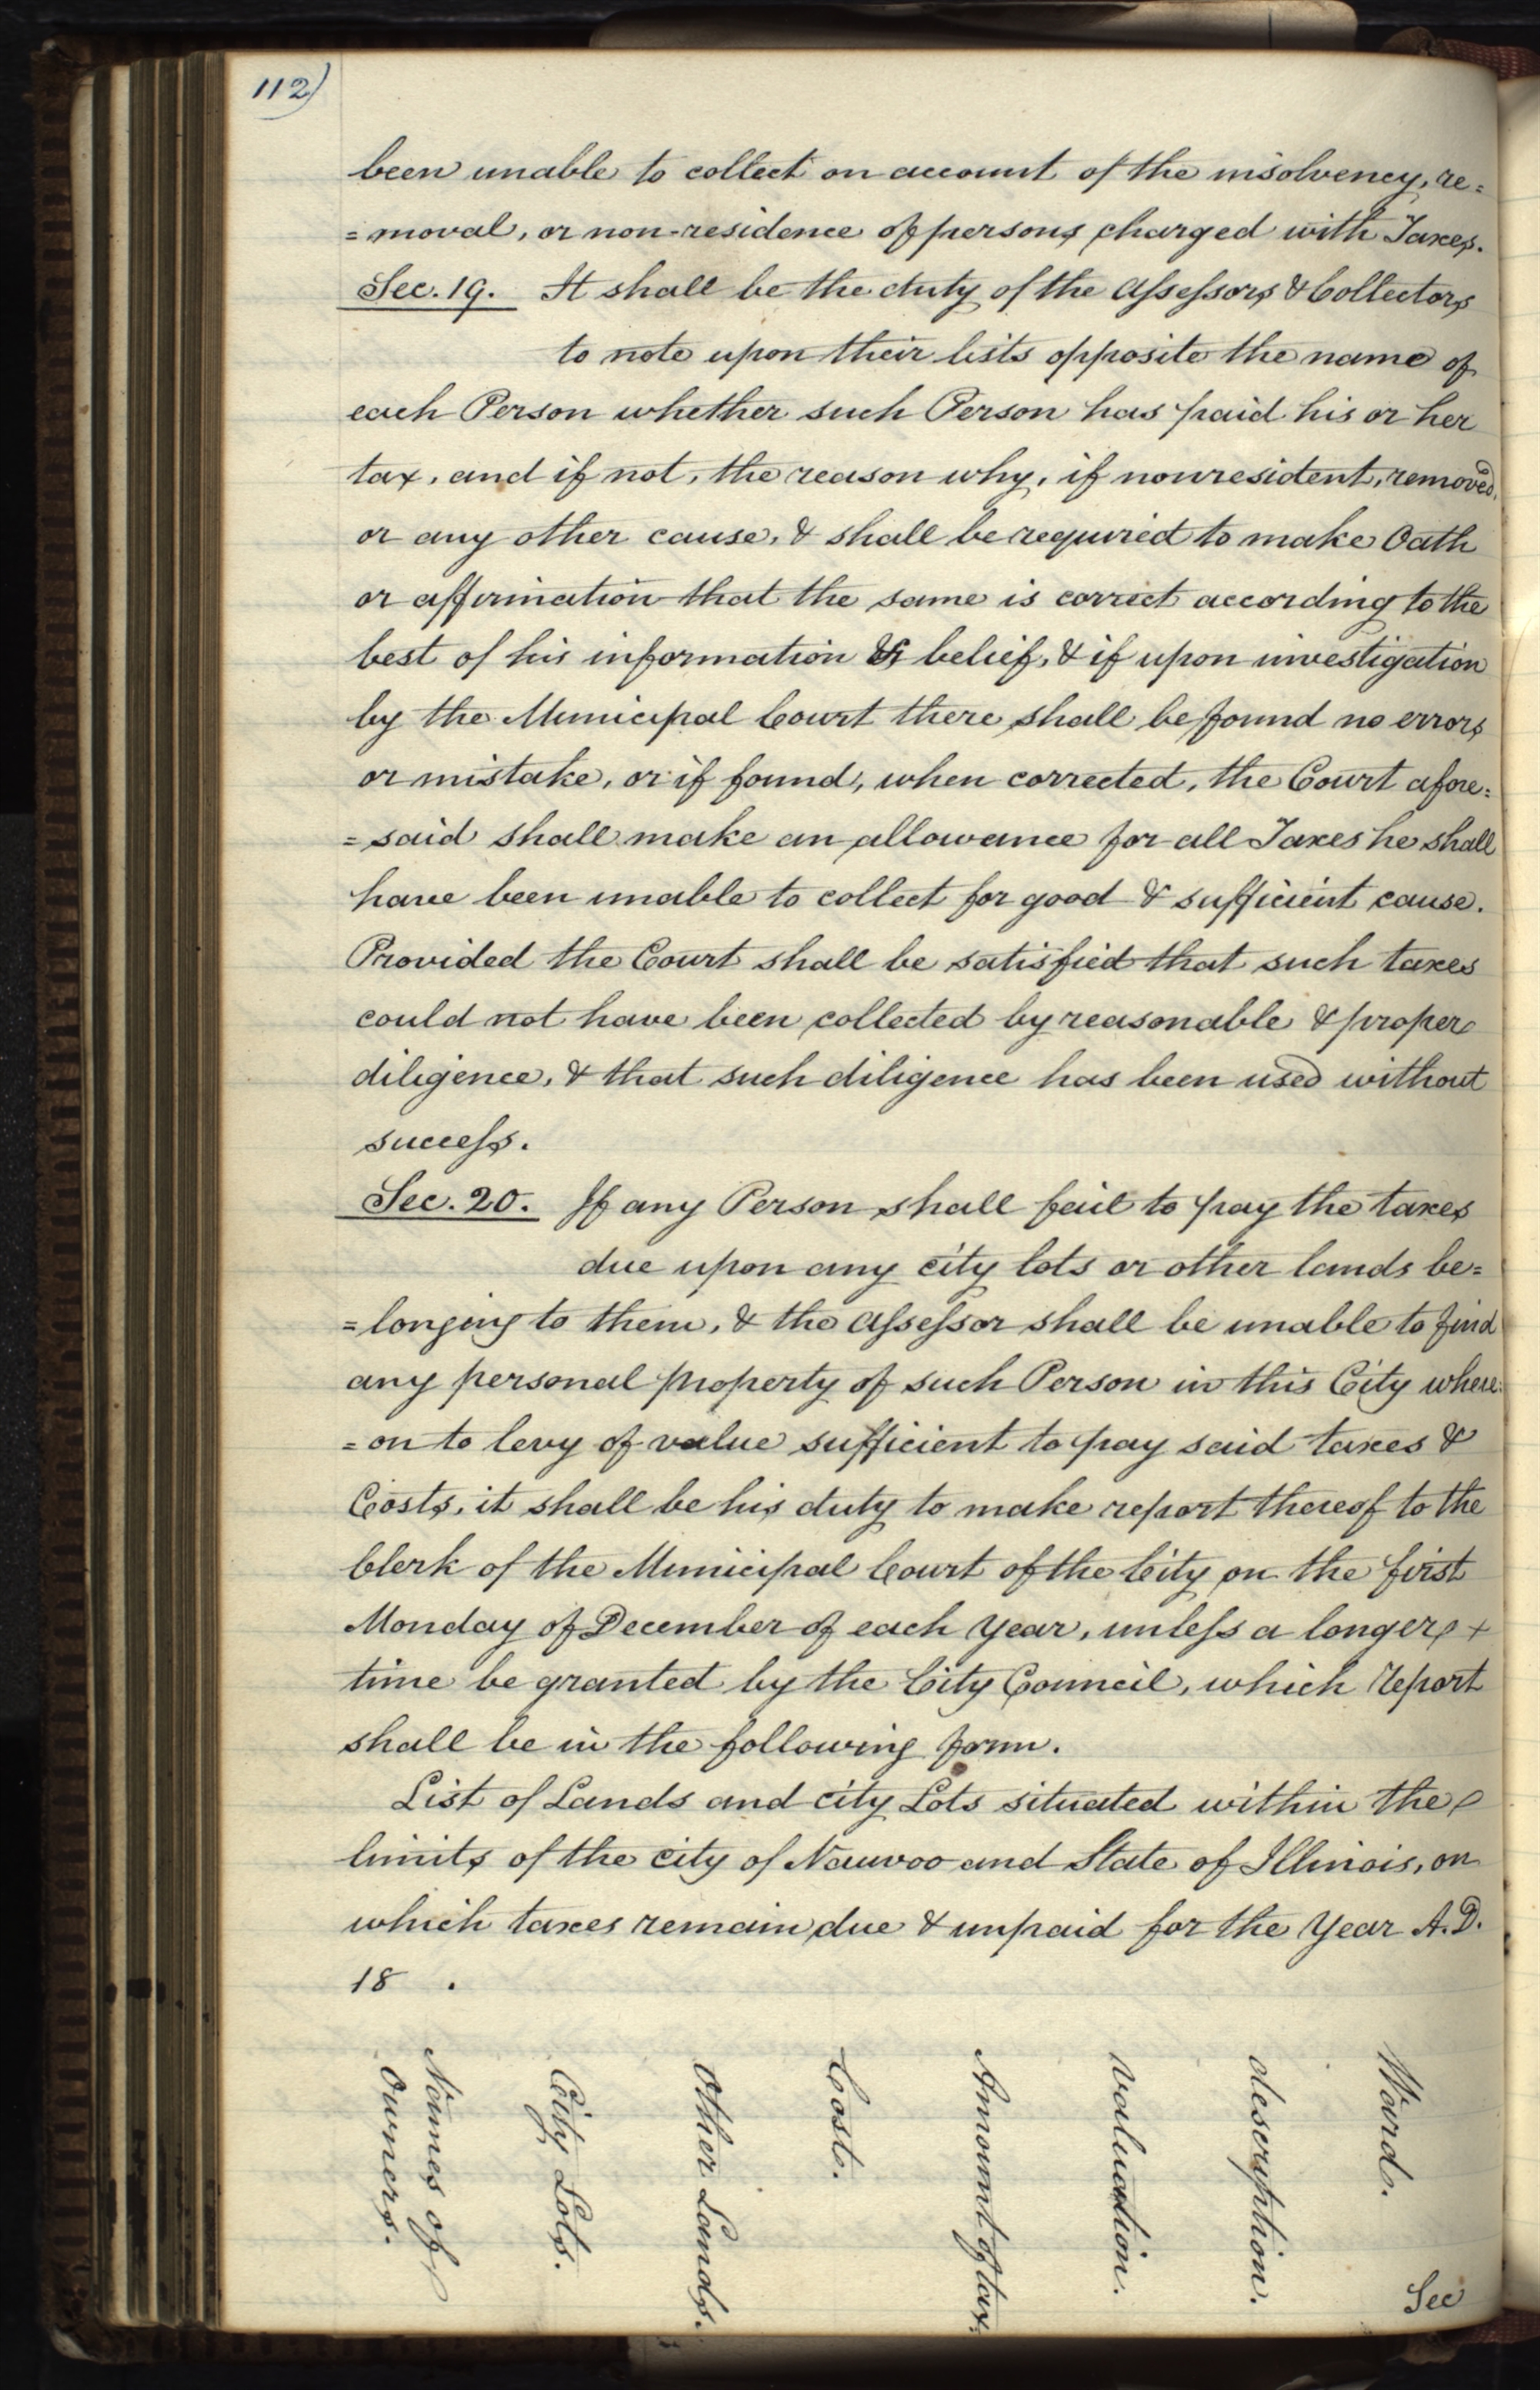 112)
been unable to collect on account of the insolvency, re=
=moval, or non-residence of persons charged with Taxes.
Sec. 19. It shall be the duty of the Assessors & Collectors
to note upon their lists opposite the name of
each Person whether such Person has paid his or her
tax, and if not, the reason why, if nonresident, removed,
or any other cause, & shall be required to make Oath
or affirmation that the same is correct according to the
best of his information & belief, & if upon investigation
by the Municipal Court there shall be found no errors
or mistake, or if found, when corrected, the Court afore=
=said shall make an allowance for all Taxes he shall
have been unable to collect for good & sufficient cause.
Provided the Court shall be satisfied that such taxes
could not have been collected by reasonable & proper
diligence, & that such diligence has been used without
success.
Sec. 20. If any Person shall fail to pay the taxes
due upon any city lots or other lands be=
=longing to them, & the Assessor shall be unable to find
any personal property of such Person in this City where=
=on to levy of value sufficient to pay said taxes &
Costs, it shall be his duty to make report thereof to the
Clerk of the Municipal Court of the City on the first
Monday of December of each Year, unless a longer +
time be granted by the City Council, which Report
shall be in the following form.
List of Lands and city Lots situated within the
limits of the city of Nauvoo and State of Illinois, on
which taxes remain due & unpaid for the Year A.D.
18 .
Names of
Owners.
City Lots.
Other Lands.
Cost.
Amount of tax.
Valuation.
description.
Ward.
Sec